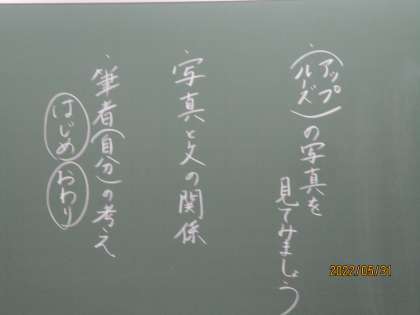 ・(アップ
ルーズ)の写真を
見てみましょう
・写真と文の関係
・筆者(自分)の考え
はじめ おわり
2022/05/31